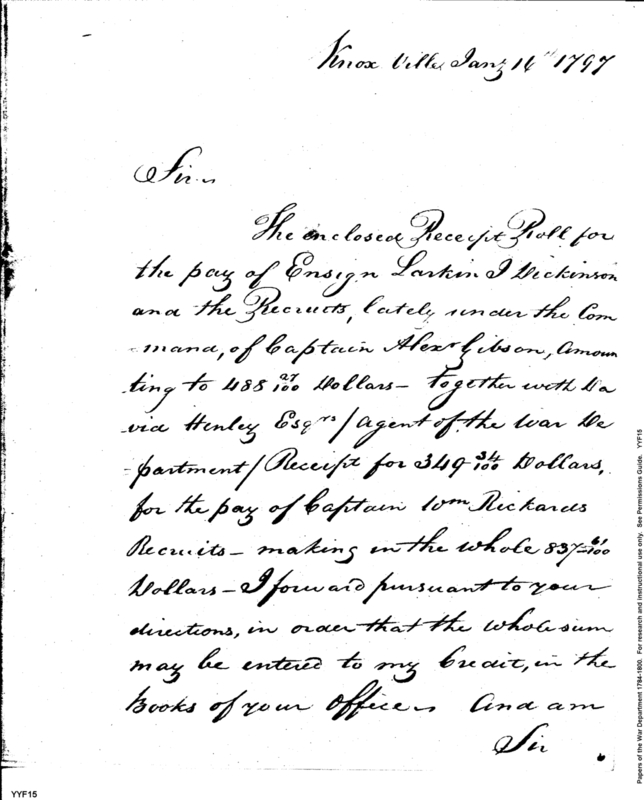 Knox Ville Jany 14th 1797
Sir
The enclosed Receipt Roll for
the pay of Ensign Larkin J Dickinson
and the Recruits, lately under the Com
-mand, of Captain Alexr Gibson, amoun
ting to 488 27/100 Dollars - together with Da
vid Henley Esqrs / agent of the War De
-partment / Receipt for 349 34/100 Dollars,
for the pay of Captain Wm Rickards
Recruits - making in the whole 837 61/100
Dollars - I forward pursuant to your
directions, in order that the whole sum
may be entered to my Credit, in the
Books of your office And am
Sir
YYF15
Papers of the War Department 1784-1800. For research and instructional use only. See Permissions Guide. YYF15